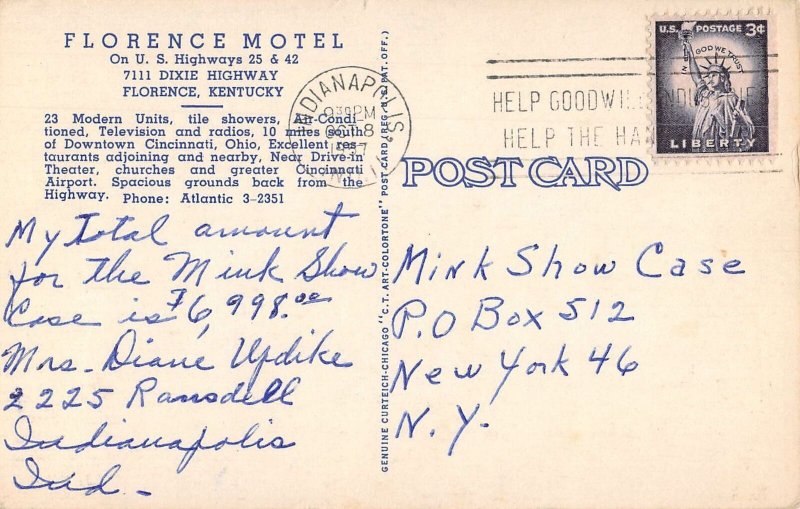 FLORENCE MOTEL
On U. S. Highways 25 & 42
7111 DIXIE HIGHWAY
FLORENCE, KENTUCKY
23 Modern Units, tile showers, Air-Condi-
tioned, Television and radios, 10 miles south
of Downtown Cincinnati, Ohio, Excellent res-
taurants adjoining and nearby, Near Drive-in
Theater, churches and greater Cincinnati
Airport. Spacious grounds back from the
Highway. Phone: Atlantic 3-2351
My total amount
for the Mink Show
Case is $6,998.00
Mrs. Diane Updike
2225 Ransdell
Indianapolis
Ind.
GENUINE CURTEICH-CHICAGO "C.T. ART-COLORTONE" POST CARD (REG. U.S. PAT. OFF.)
INDIANAPOLIS
PM
OCT 8
HELP GOODWILL
HELP THE
U.S. POSTAGE 3¢
IN GOD WE TRUST
LIBERTY
POST CARD
Mink Show Case
P.O Box 512
New York 46
N.Y.